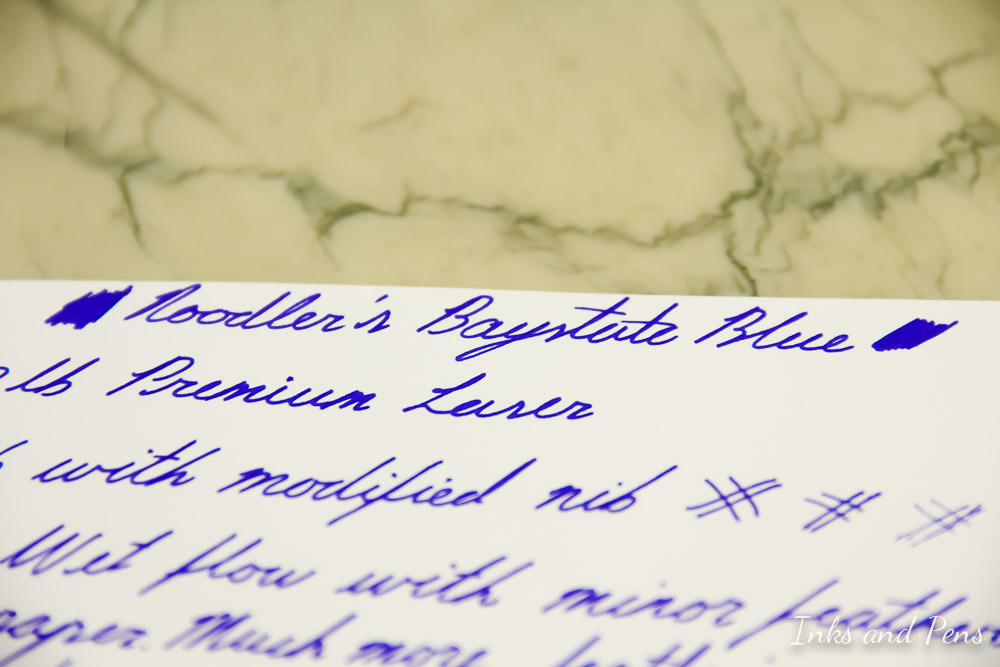 Noodler's Baystate Blue
lb Premium Laser
with modified nib
Wet flow with minor
paper. Much more
Inks and Pens